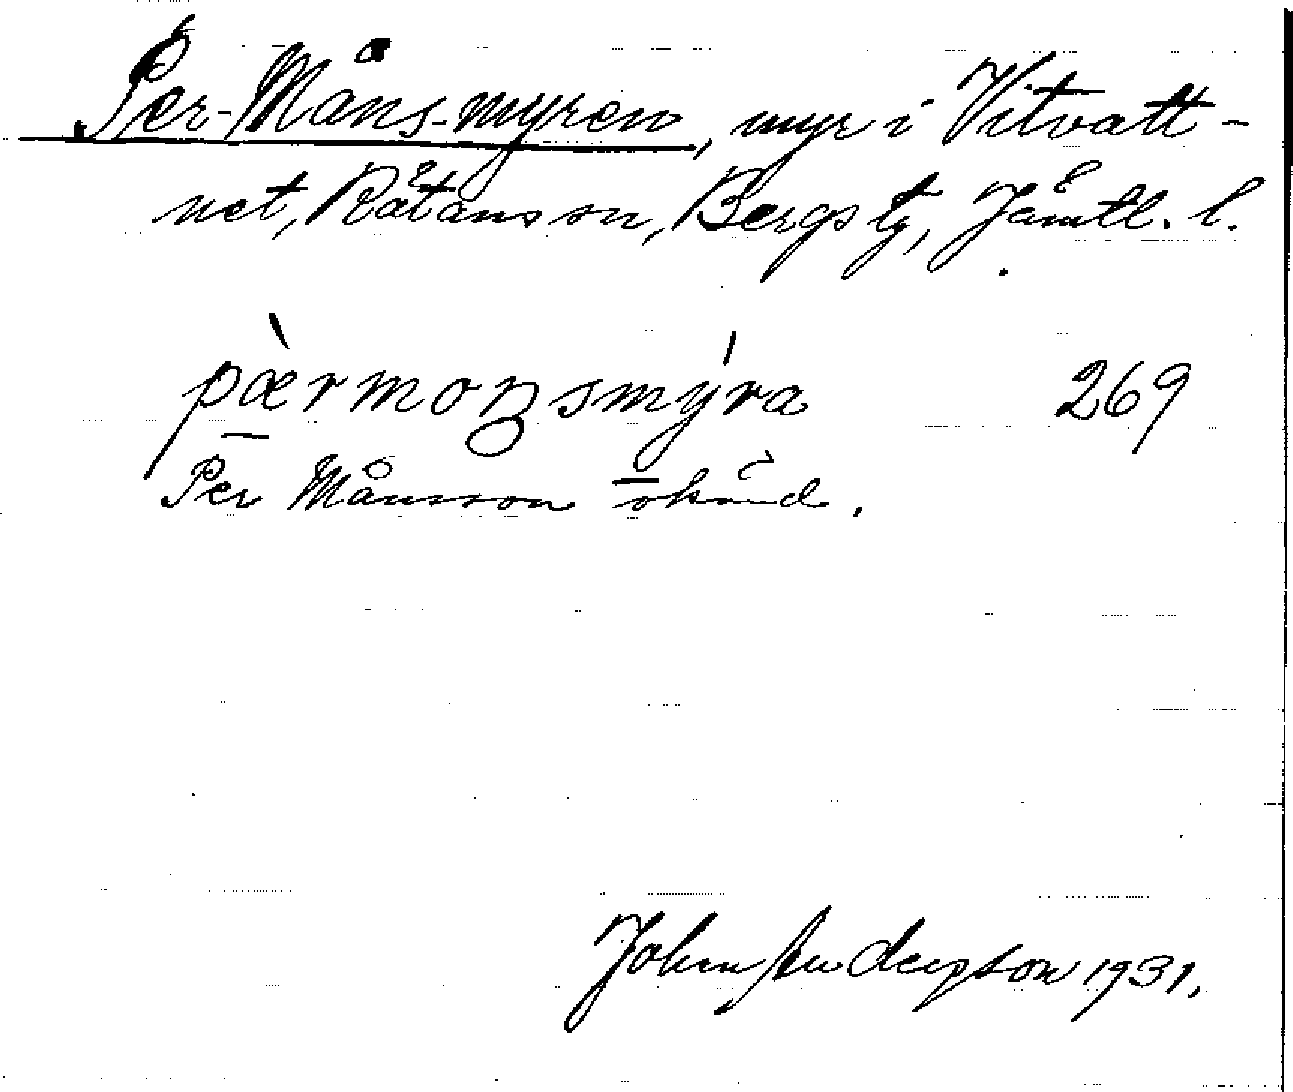 Per-Måns-myren, myr i Vitvatt-
net, Rätans sn, Bergs tg, Jämtl. l.
pæ̀rmoŋsmýra 269
Per Månsson okänd.
John Andersson 1931.